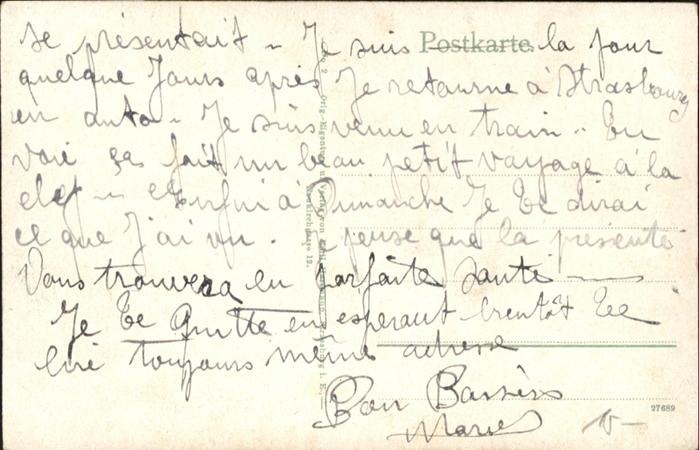 se présentait - Je suis la pour
Postkarte
quelque Jours après Je retourne à Strasbourg
en auto - Je suis venu en train - Tu
voie ça fait un beau petit vayage à la
clef - Enfin a Dimanche Je te dirai
ce que J'ai vu. Je pense que la présente
Vous trouvera en parfaite Santé
Je te Quitte en esperant bientôt te
liré toujours même adresse
Bon Bassèrs
Marie
27689